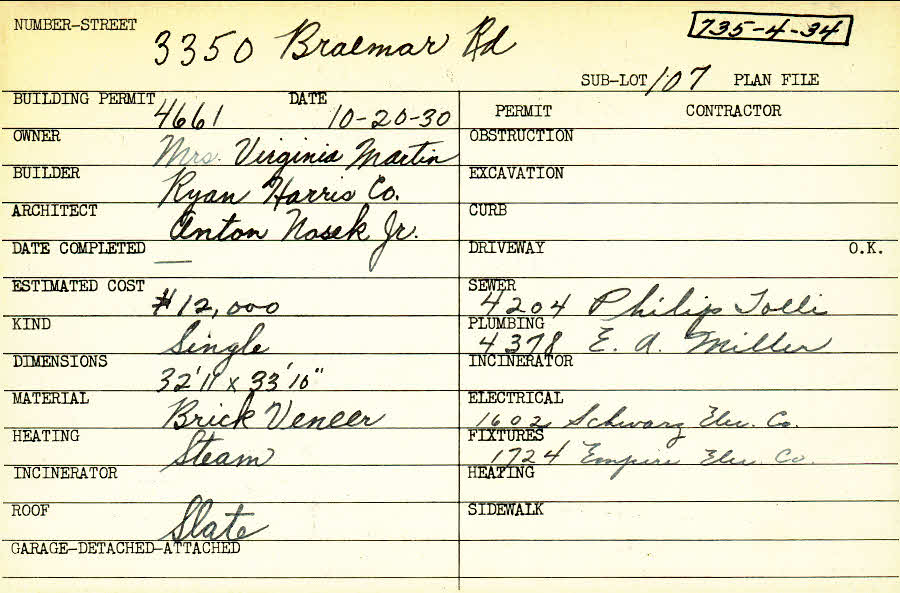 NUMBER-STREET 3350 Braemar Rd 735-4-34
SUB-LOT 107 PLAN FILE
BUILDING PERMIT 4661 DATE 10-20-30
OWNER Mrs. Virginia Martin
BUILDER Ryan Harris Co.
ARCHITECT Anton Nosek Jr.
DATE COMPLETED —
ESTIMATED COST $12,000
KIND Single
DIMENSIONS 32'11 x 33'10"
MATERIAL Brick Veneer
HEATING Steam
INCINERATOR
ROOF Slate
GARAGE-DETACHED-ATTACHED
PERMIT CONTRACTOR
OBSTRUCTION
EXCAVATION
CURB
DRIVEWAY O.K.
SEWER 4204 Philip Tolli
PLUMBING 4378 E. A. Miller
INCINERATOR
ELECTRICAL 1602 Schwarz Elec. Co.
FIXTURES 1724 Empire Elec. Co.
HEATING
SIDEWALK